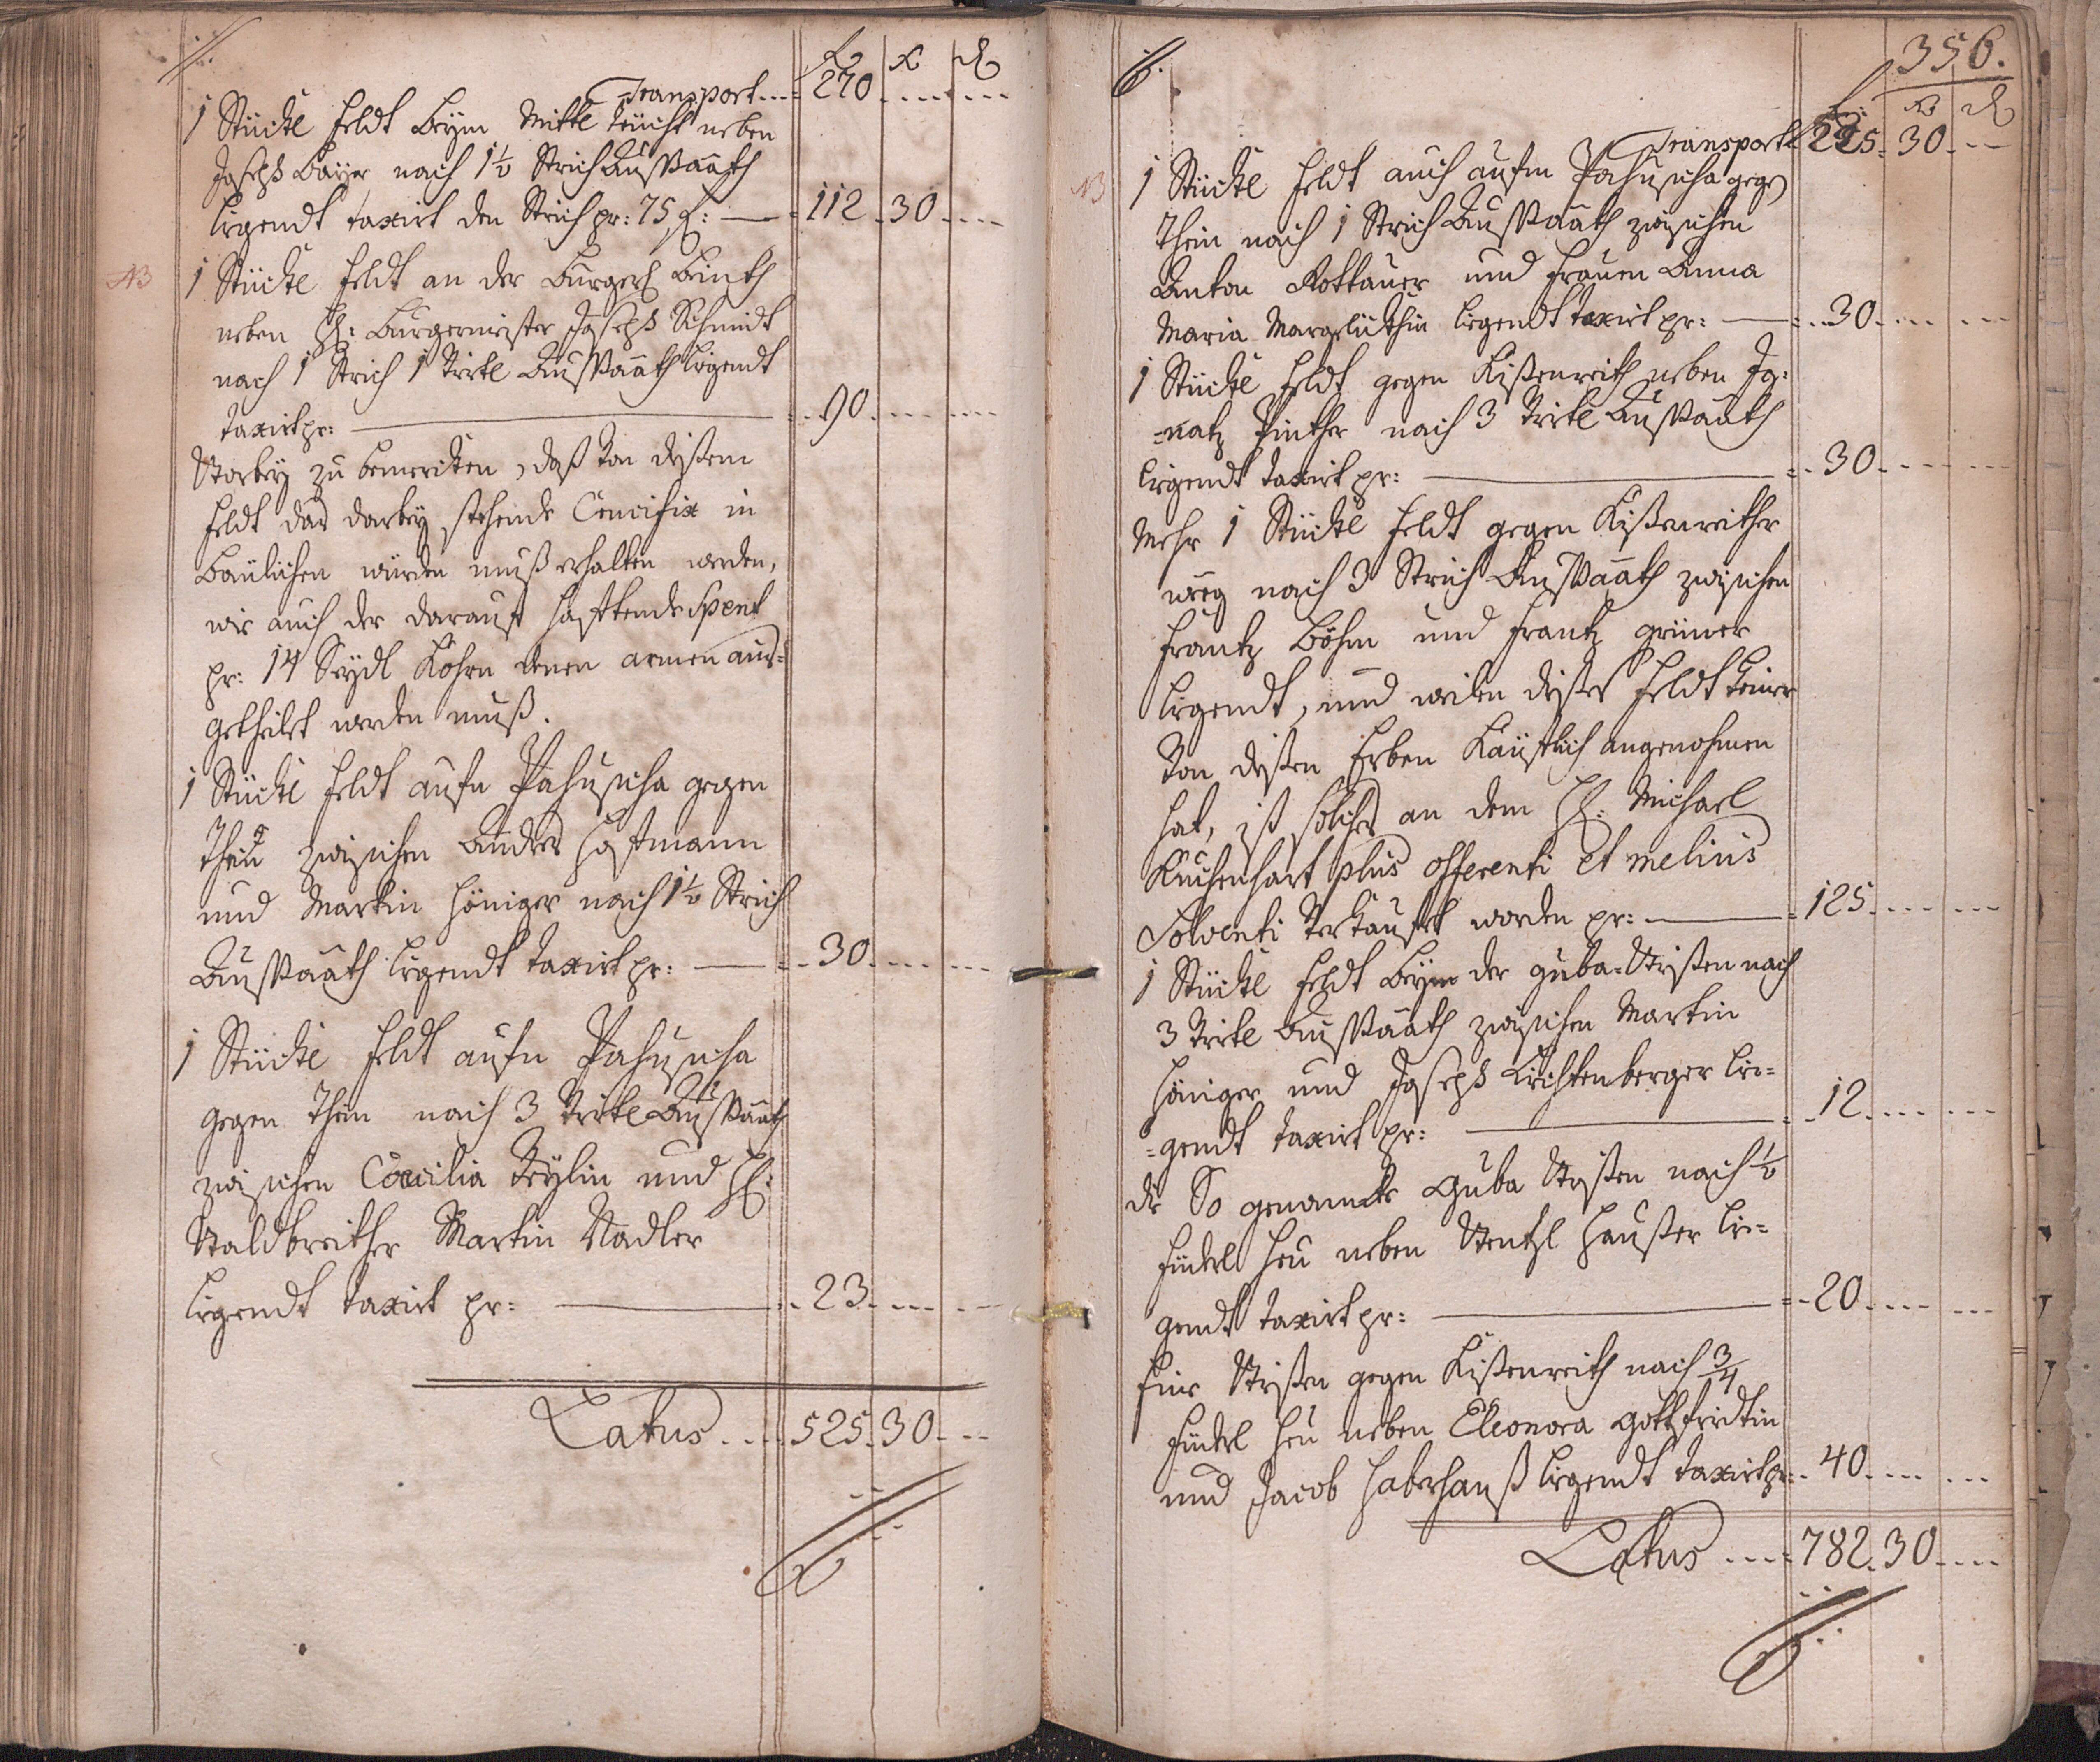 fl x d
Transport 270
1 Stückl Feldt Beym Mittl Teücht neben
Joseph Bayer nach 1½ Strich Außsaath
ligendt taxirt den Strich pr: 75 f: 112 30
NB 1 Stückl Feldt an der Burgerl
neben H: Burgermeister Joseph Schmidt
nach 1 Strich 1 Virtl Außsaath ligendt
taxirt pr: 90
Worbey zu bemercken, daß von dißem
Feldt das darbey stehende Crucifix in
Baulichen würden muß erhalten werden,
wie auch der darauf hafftende Spent
pr: 14 Seydl Kohrn denen armen aus-
getheilet werden muß.
1 Stückl Feldt aufn Pahuscha gegen
Thein zwischen Andres Hoffmann
und Martin Höniger nach 1½ Strich
Außsaath ligendt taxirt pr: 30
1 Stückl Feldt aufn Pahuscha
gegen Thein nach 3 Virtl Außsaath
zwischen Cœcilia Beylin und H:
Waldbreither Martin Nadler
ligendt taxirt pr: 23
Latus 525 30
356.
fl x d
Transport 525 30
NB 1 Stückl Feldt auch aufm Pahuscha gegen
Thein nach 1 Strich Außsaath zwischen
Anton Rottauer und Frauen Anna
Maria ligendt taxirt pr: 30
1 Stückl Feldt gegen Kißenreith neben Ig-
-natz Pinther nach 3 Virtl Außsaath
ligendt taxirt pr: 30
Mehr 1 Stückl Feldt gegen Kißenreither
weeg nach 3 Strich Außsaath zwischen
Frantz Böhm und Frantz grüner
ligendt, und weilen dißes Feldt keiner
von dißen Erben Käufflich angenohmen
hat, ist solches an dem H: Michael
Kuchenhart plus offerenti et melius
solventi verkaufft worden pr: 125
1 Stückl Feldt Beym der guba-Wißen nach
3 Virtl Außsaath zwischen Martin
Höniger und Joseph Lichtenberger lie-
-gendt taxirt pr: 12
die So genannte Guba Wißen nach ½
Fuderl Heu neben Wentzl Haußer lie-
gendt taxirt pr: 20
Eine Wißen gegen Kißenreith nach ¾
Fuderl Heu neben Eleonora Gottfridtin
und Jacob Haberhanß ligendt taxirt pr: 40
Latus 782 30